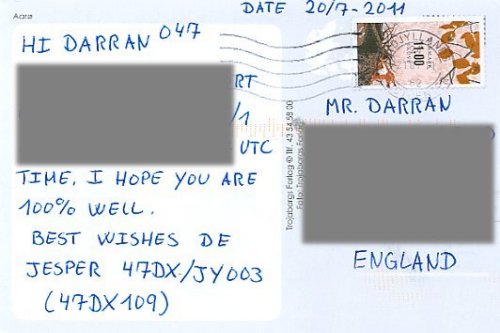 DATE 20/7-2011
Aarø
HI DARRAN 047
RT
/1
UTC
TIME. I HOPE YOU ARE
100% WELL.
BEST WISHES DE
JESPER 47DX/JY003
(47DX109)
11:00
MR. DARRAN
ENGLAND
Trojaborgs Forlag © Tlf. 43 54 58 00
Foto: Trojaborgs Forlag